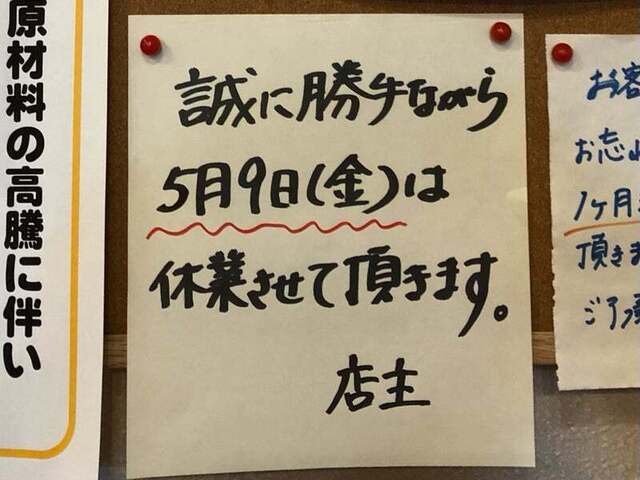 原材料の高騰に伴い
誠に勝手ながら
5月9日(金)は
休業させて頂きます。
店主
お客
お忘れ
1ヶ月
頂きま
ご了承